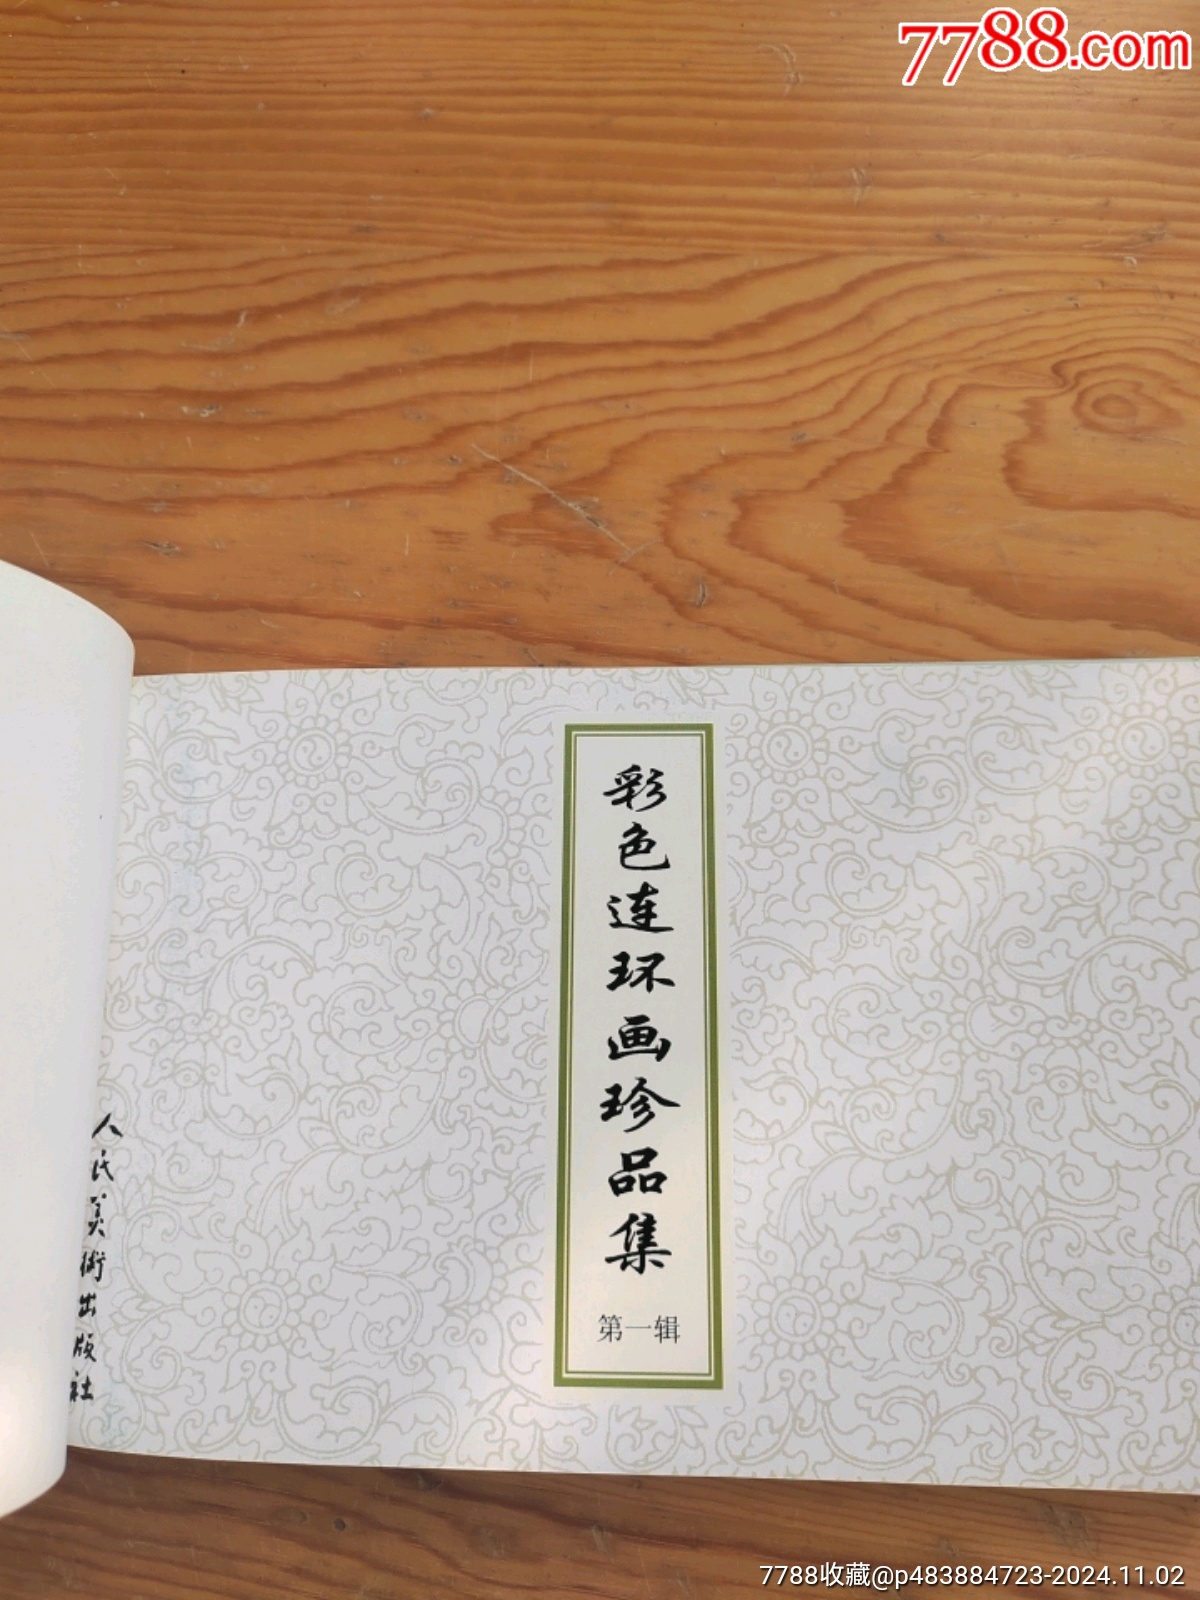 7788.com
彩色连环画珍品集
第一辑
人民美術出版社
7788收藏@p483884723-2024.11.02